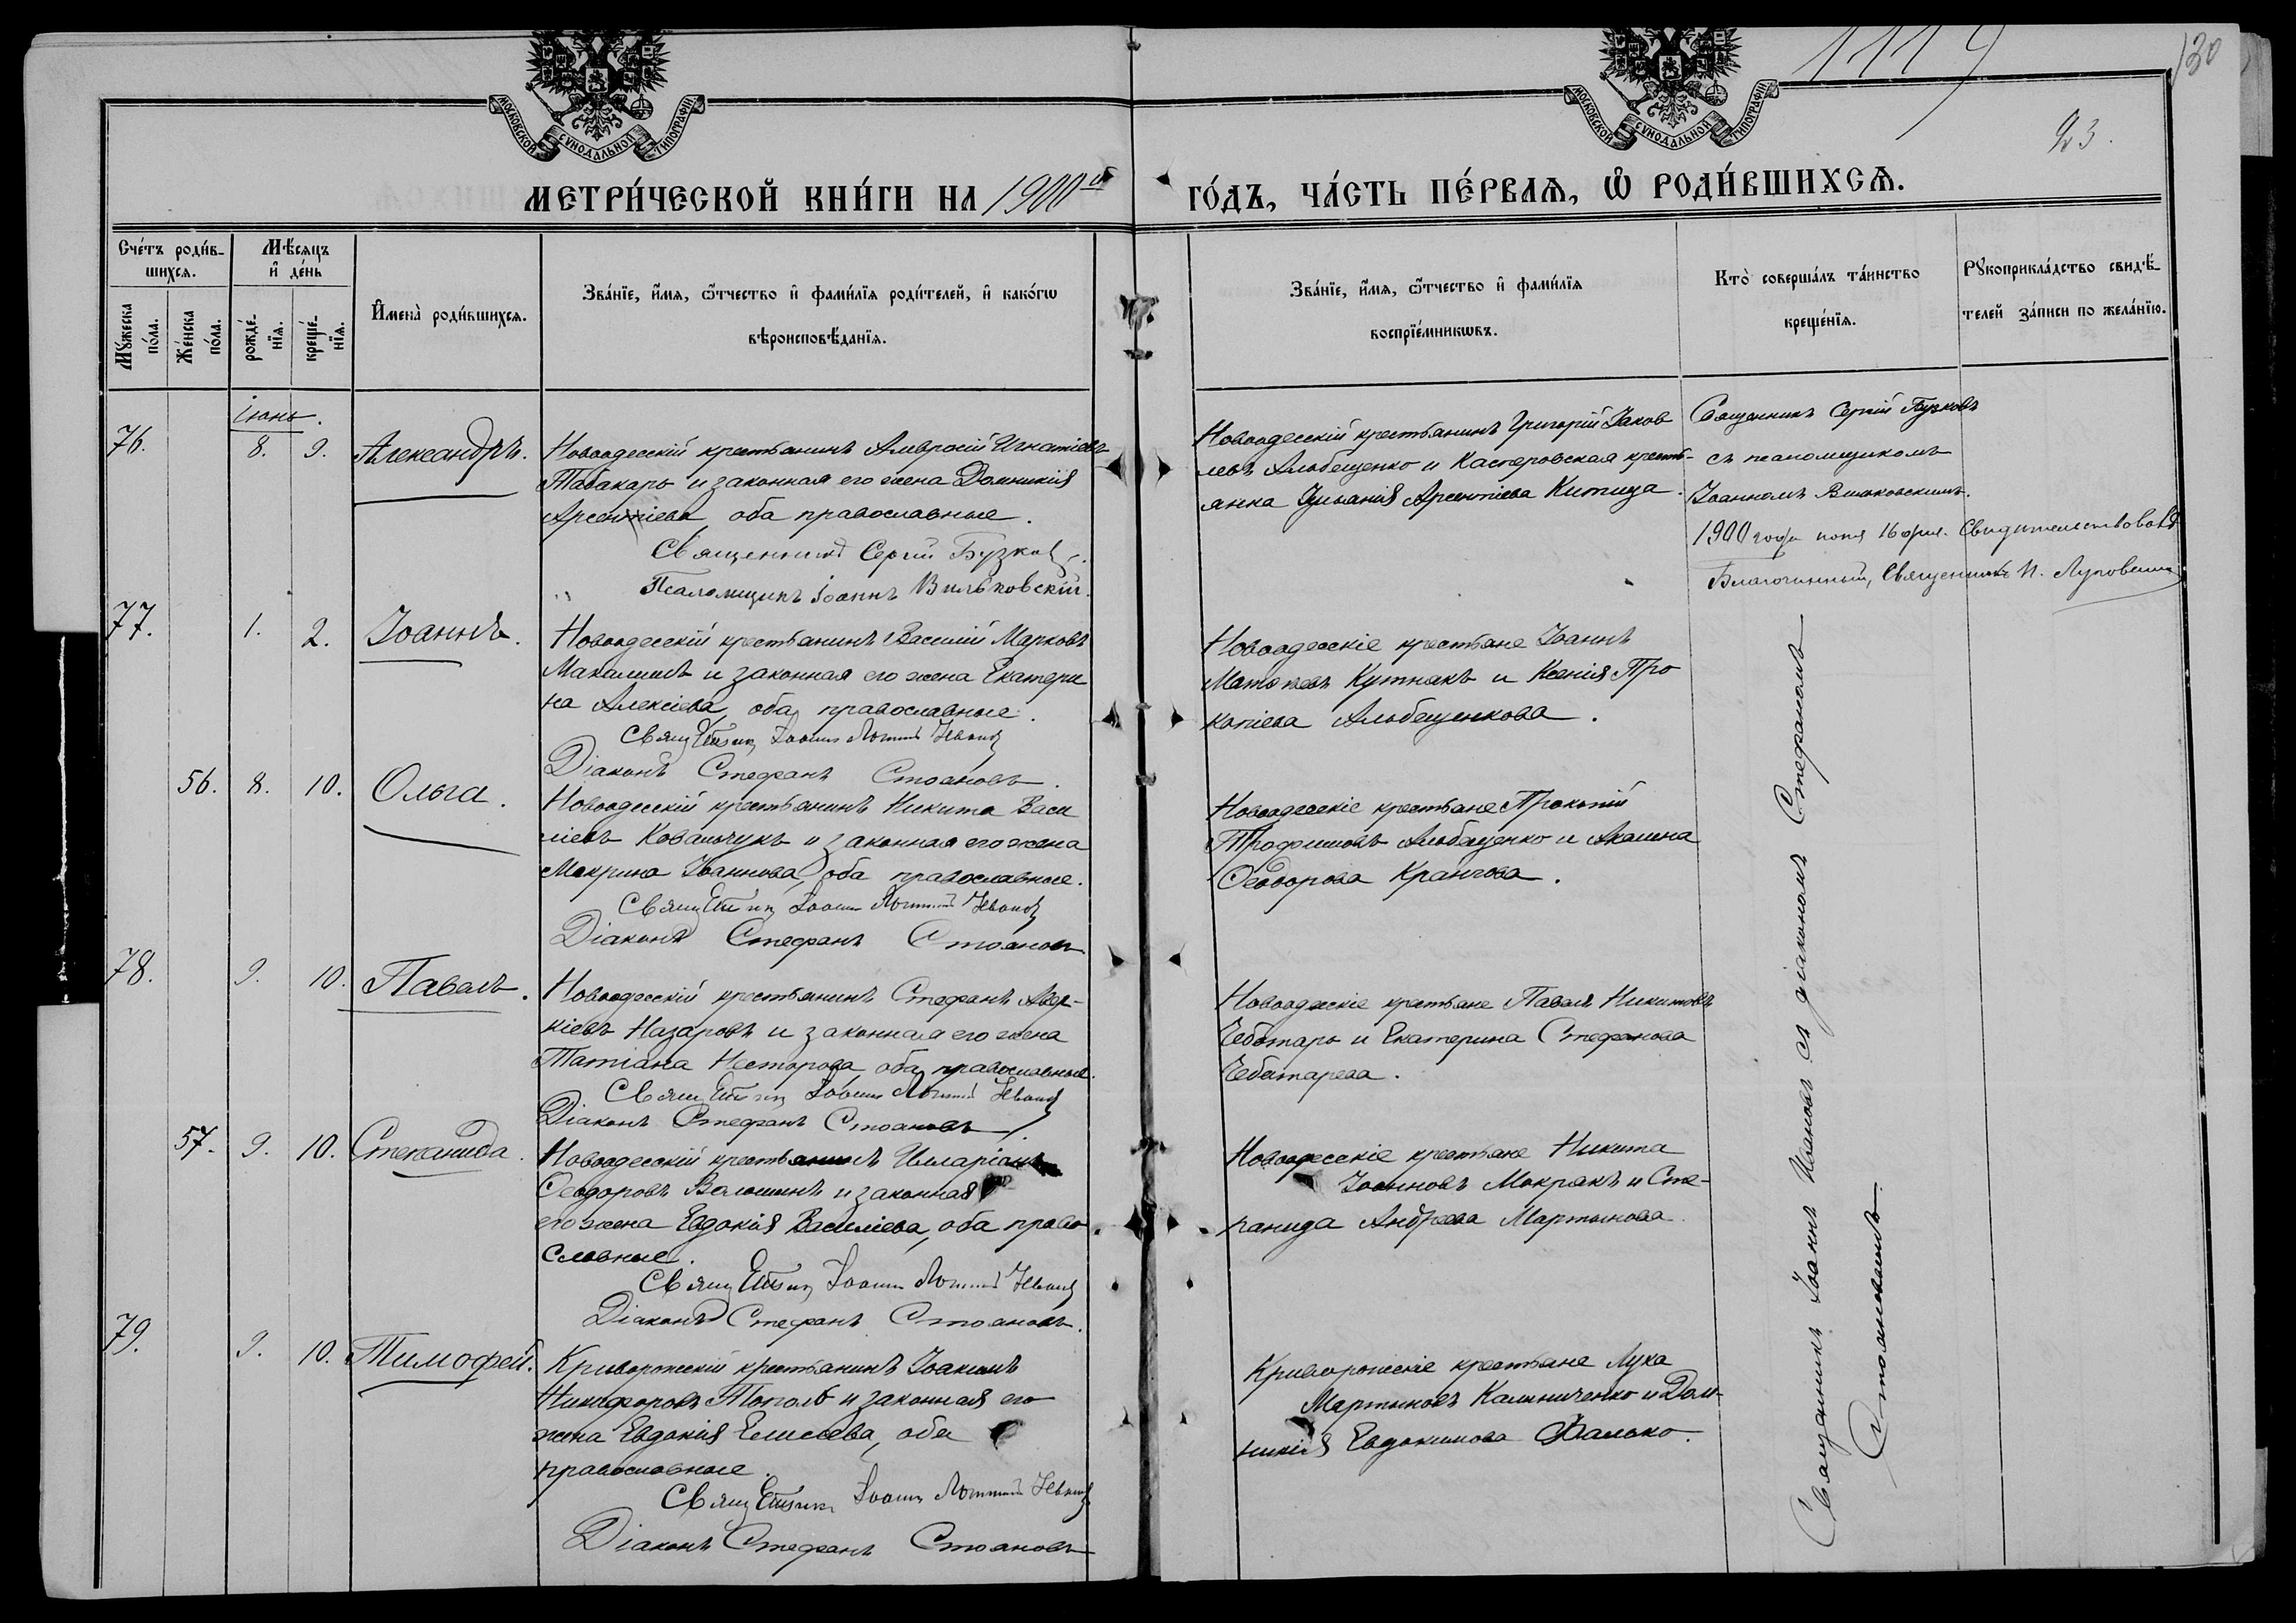 МОСКОВСКОЙ СѴНОДАЛЬНОЙ ТИПОГРАФІИ
МОСКОВСКОЙ СѴНОДАЛЬНОЙ ТИПОГРАФІИ
130
23.
МЕТРИ́ЧЕСКОЙ КНИ́ГИ НА 1900й
ГО́ДЪ, ЧА́СТЬ ПЕ́РВАѦ, Ѽ РОДИ́ВШИХСѦ.
Сче́тъ роди́в-
шихсѧ.
Мѣ́сѧцъ
и҆ де́нь
Мꙋ́жеска
по́ла.
Же́нска
по́ла.
рожде́-
нїѧ.
креще́-
нїѧ.
И҆мена̀ роди́вшихсѧ.
Зва́нїе, и҆́мѧ, ѻ҆́тчество и҆ фами́лїѧ роди́телей, и҆ како́гѡ
вѣроисповѣ́данїѧ.
Зва́нїе, и҆́мѧ, ѻ҆́тчество и҆ фами́лїѧ
воспрїе́мникѡвъ.
Кто̀ соверша́лъ та́инство
креще́нїѧ.
Рꙋкоприкла́дство свидѣ́-
телей за́писи по жела́нїю.
Іюнь.
76. 8. 9. Александръ.
Новоодесскій крестьянинъ Амвросій Игнатіевъ
Табакарь и законная его жена Домникія
Арсентіева, оба православные.
Священникъ Сергій Бузковъ.
Псаломщикъ Іоаннъ Вильковскій.
Новоодесскій крестьянинъ Григорій Іаков
левъ Альбещенко и Касперовская кресть-
янка Арсентіева
Священникъ Сергій Бузковъ
съ псаломщикомъ
Іоанномъ Вильковскимъ.
1900 года іюля 16 дня. Свидѣтельствовалъ
Благочинный, Священникъ
77. 1. 2. Іоаннъ.
Новоодесскій крестьянинъ Василій Марковъ
и законная его жена Екатери
на Алексіева, оба православные.
Священникъ Іоаннъ Ивановъ
Діаконъ Стефанъ Стояновъ.
Новоодесскіе крестьяне Іоаннъ
Кутнякъ и Ксенія Про
копіева Альбещенкова.
56. 8. 10. Ольга.
Новоодесскій крестьянинъ Никита Васи
ліевъ Ковальчукъ и законная его жена
Макрина Іоаннова, оба православные.
Священникъ Іоаннъ Ивановъ
Діаконъ Стефанъ Стояновъ
Новоодесскіе крестьяне Прокопій
Трофимовъ Альбещенко и Акилина
Ѳеодорова
78. 9. 10. Павелъ.
Новоодесскій крестьянинъ Стефанъ Авер-
кіевъ Назаровъ и законная его жена
Татіана Несторова, оба православные.
Священникъ Іоаннъ Ивановъ
Діаконъ Стефанъ Стояновъ
Новоодесскіе крестьяне Павелъ Никитовъ
Чеботарь и Екатерина Стефанова
Чеботарева.
57. 9. 10. Степанида.
Новоодесскій крестьянинъ Илларіонъ
Ѳеодоровъ Волошинъ и законная
его жена Евдокія Василіева, оба право
славные.
Священникъ Іоаннъ Ивановъ
Діаконъ Стефанъ Стояновъ.
Новоодесскіе крестьяне Никита
Іоанновъ Мокрякъ и Сте-
панида Андреева Мартынова.
79. 9. 10. Тимофей.
Криворожскій крестьянинъ Іоакимъ
Никифоровъ Тополь и законная его
жена Евдокія Елисеева, оба
православные.
Священникъ Іоаннъ Ивановъ
Діаконъ Стефанъ Стояновъ
Криворожскіе крестьяне Лука
Мартыновъ Калиниченко и Дом-
никія Евдокимова Фалько.
Священникъ Іоаннъ Ивановъ съ діакономъ Стефаномъ
Стояновымъ.